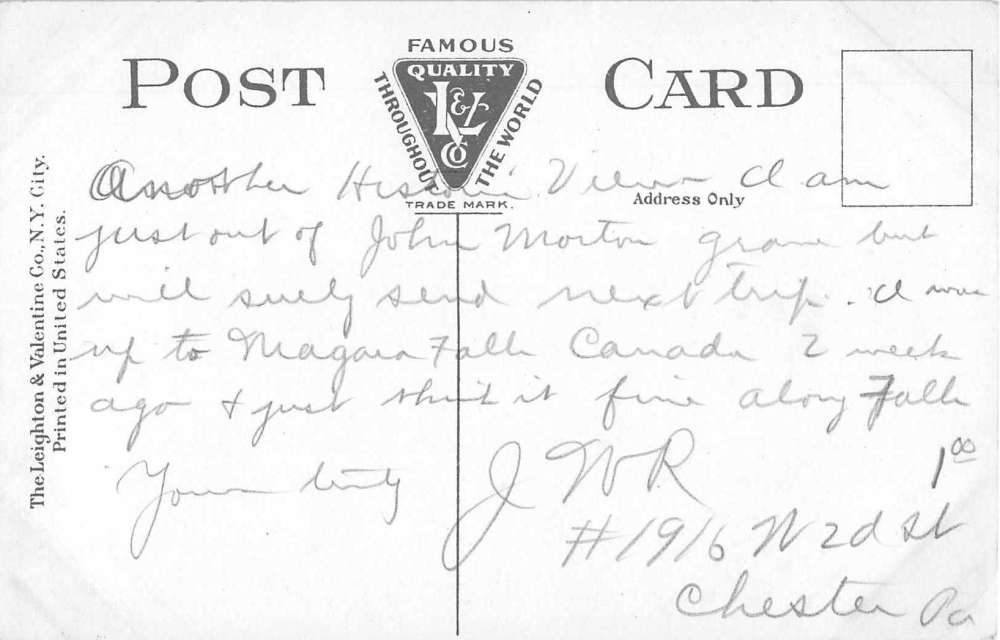 POST CARD
FAMOUS
QUALITY
THROUGHOUT
THE WORLD
L&V
CO
TRADE MARK.
Address Only
The Leighton & Valentine Co., N.Y. City.
Printed in United States.
Another Historic View I am
just out of John Morton grave but
will suely send next trip. I was
up to Niagara Falls Canada 2 week
ago + just think it fine along Falls
Your truly J W R
1⁰⁰
#1916 W 2d St
Chester Pa